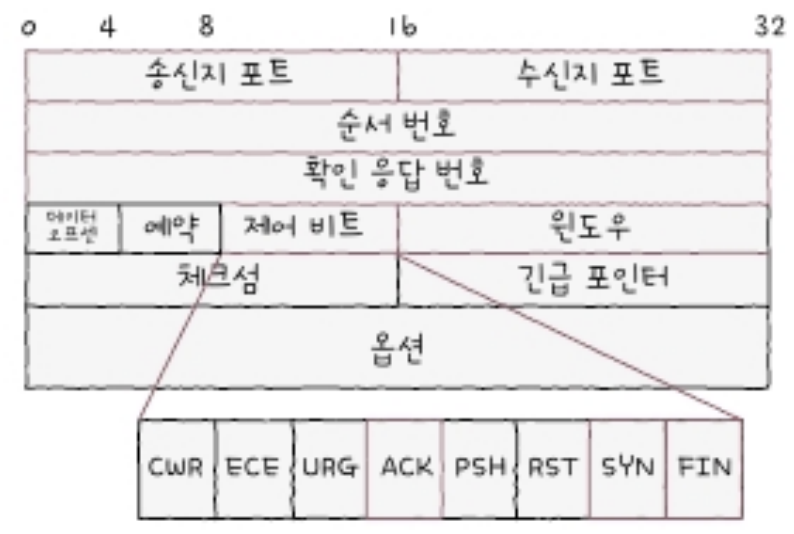 0 4 8 16 32
송신지 포트 수신지 포트
순서 번호
확인 응답 번호
데이터
오프셋 예약 제어 비트 윈도우
체크섬 긴급 포인터
옵션
CWR ECE URG ACK PSH RST SYN FIN